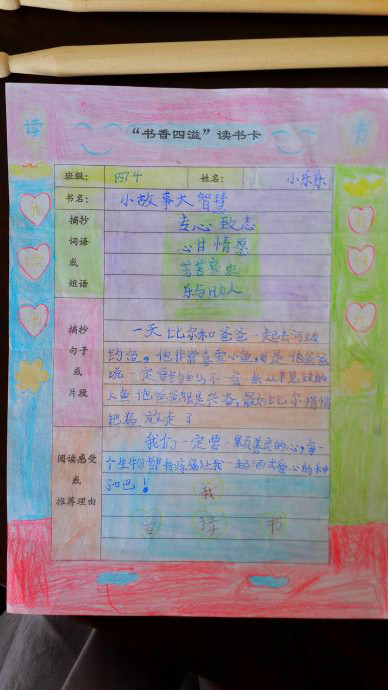 读 书
“书香四溢”读书卡
班级: 四4 姓名: 小乐乐
书名: 小故事大智慧
摘抄词语或短语
专心致志
心甘情愿
苦苦哀求
乐与助人
摘抄句子或片段
一天比尔和爸爸一起去河边
钓鱼。他非常喜爱小鱼,
说一定要钓到,不一会一条从未见过的
大鱼他爸爸很是兴奋,最后比尔悄悄
把 放走了
阅读感受或推荐理由
我们一定要一颗善良的心,每
个生物都有 让我一起洒出爱心的种
子吧!
我
喜 读 书